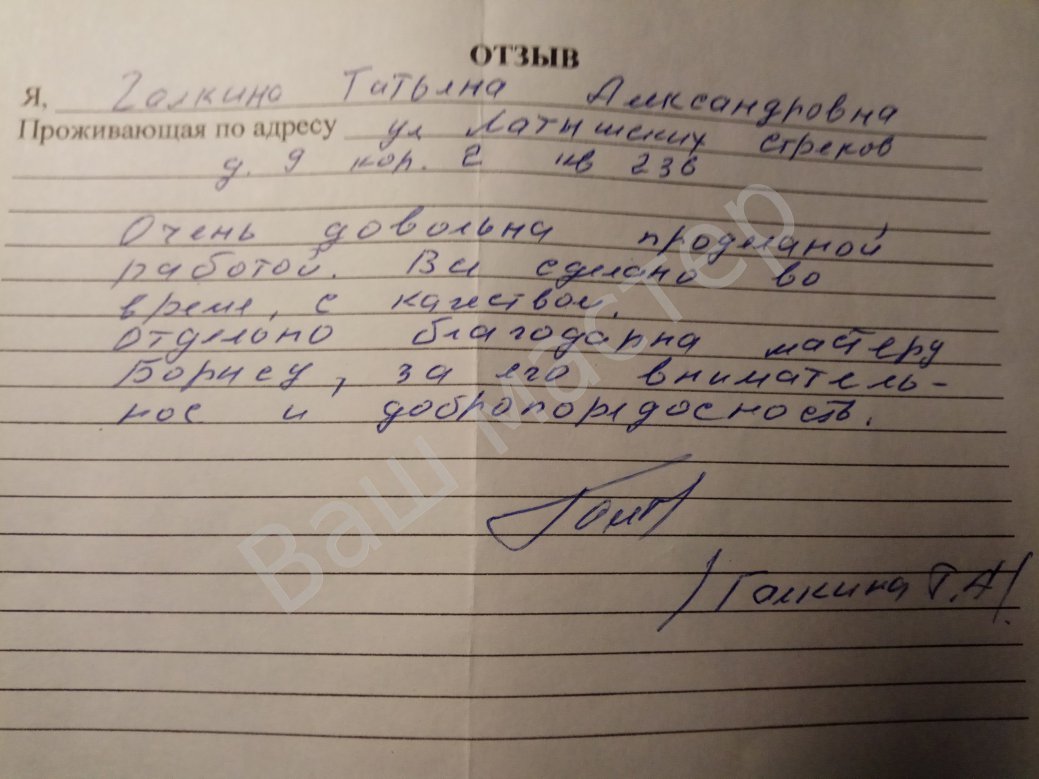 ОТЗЫВ
Я, Галкина Татьяна Александровна
Проживающая по адресу ул Латышских стрелов
д. 9 кор. 2 кв 236
Очень довольна проделаной
работой. Все сделано во
время, с качеством.
Отдельно благодарна мастеру
Борису, за его вниматель-
нос и добропорядосность.
Галкина Т.А.
Ваш мастер